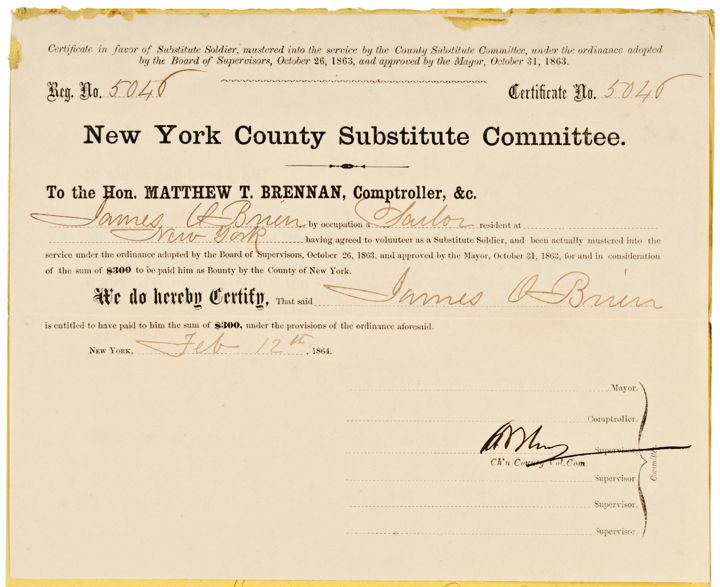 Certificate in favor of Substitute Soldier, mustered into the service by the County Substitute Committee, under the ordinance adopted
by the Board of Supervisors, October 26, 1863, and approved by the Mayor, October 31, 1863.
Reg. No. 5046 Certificate No. 5046
New York County Substitute Committee.
To the Hon. MATTHEW T. BRENNAN, Comptroller, &c.
James O Brien by occupation a Sailor resident at
New York having agreed to volunteer as a Substitute Soldier, and been actually mustered into the
service under the ordinance adopted by the Board of Supervisors, October 26, 1863, and approved by the Mayor, October 31, 1863, for and in consideration
of the sum of $300 to be paid him as Bounty by the County of New York.
We do hereby Certify, That said James O Brien
is entitled to have paid to him the sum of $300, under the provisions of the ordinance aforesaid.
NEW YORK, Feb 12th, 1864.
Mayor.
Comptroller.
Supervisor
Ch'n County Vol. Com.
Supervisor
Supervisor.
Supervisor.
Committee.